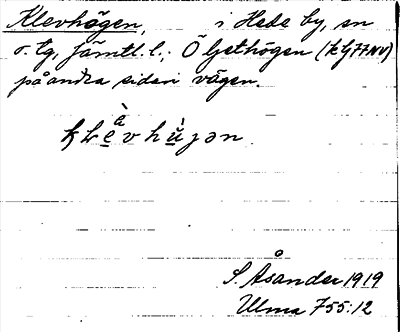 Klevhögen, i Hede by, sn
o. tg, Jämtl. l.; Ö Ljusthögen (k 977 NV)
på andra sidan vägen.
S. Åsander 1919
Ulma 755:12